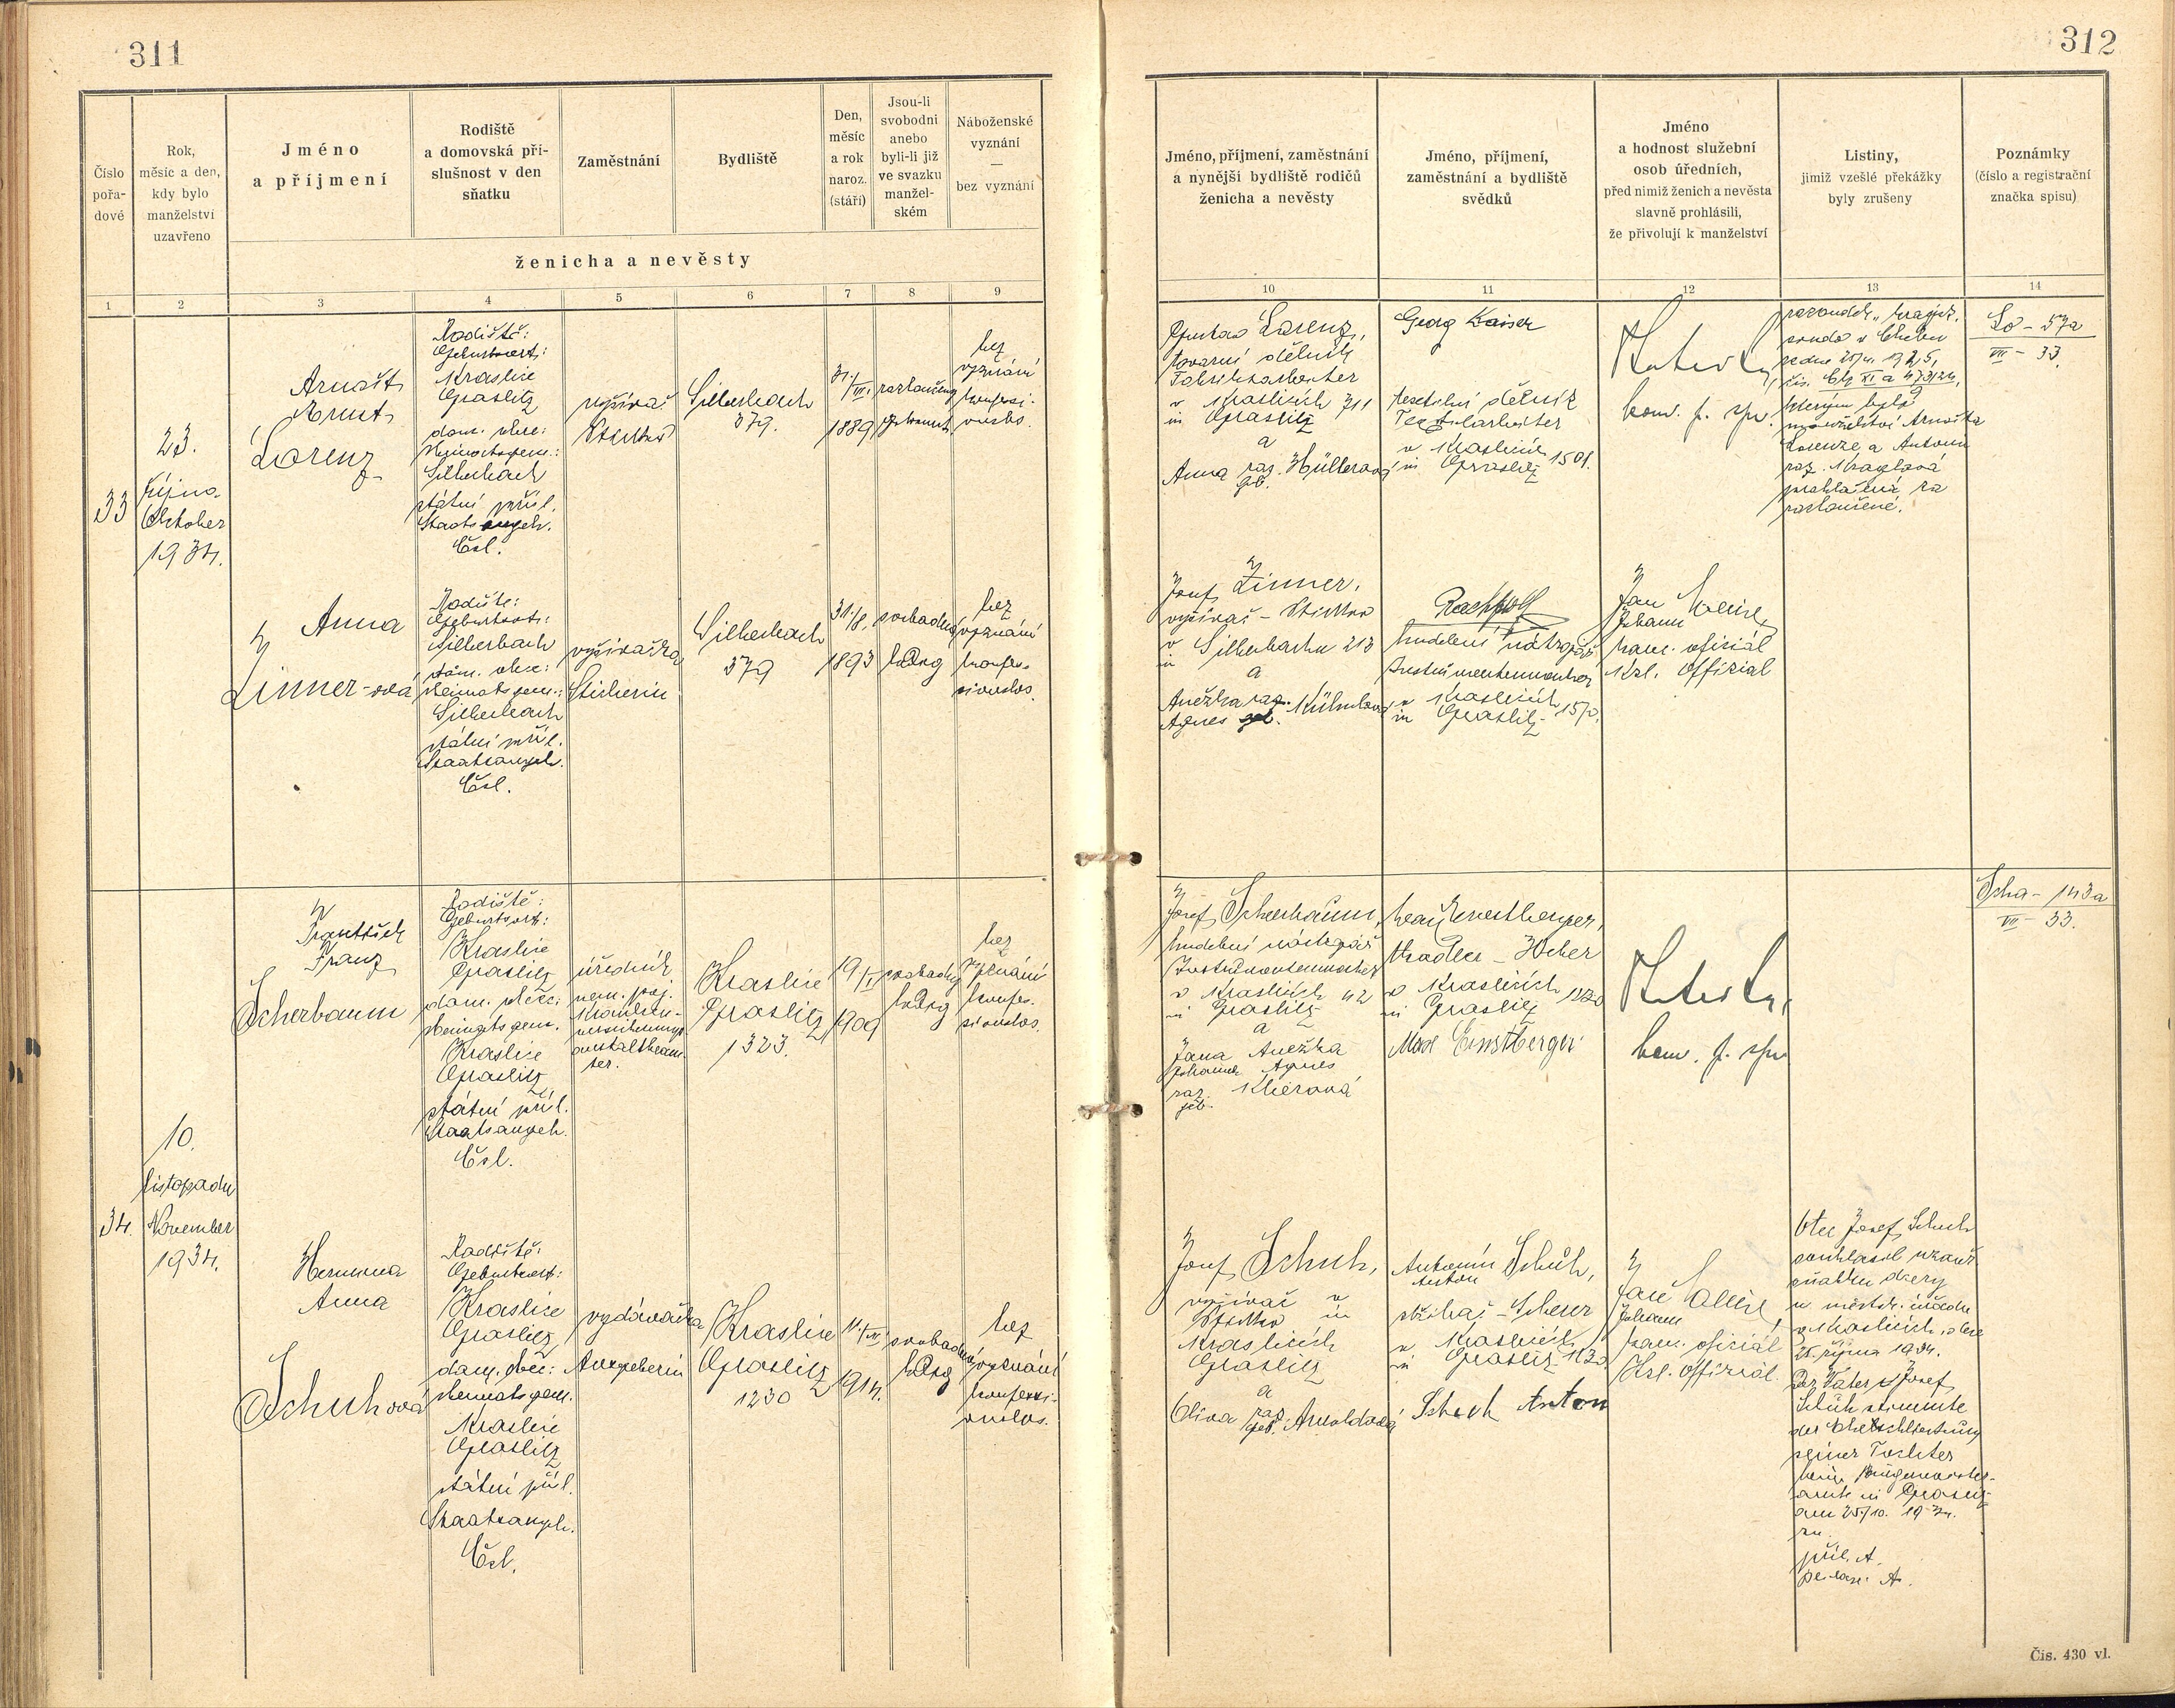 311
Číslo
pořa-
dové
Rok,
měsíc a den,
kdy bylo
manželství
uzavřeno
Jméno
a příjmení
Rodiště
a domovská pří-
slušnost v den
sňatku
Zaměstnání
Bydliště
Den,
měsíc
a rok
naroz.
(stáří)
Jsou-li
svobodni
anebo
byli-li již
ve svazku
manžel-
ském
Náboženské
vyznání
—
bez vyznání
ženicha a nevěsty
1 2 3 4 5 6 7 8 9
33
23.
října
Oktober
1934.
Arnošt
Ernst
Lorenz
Rodiště:
Geburtsort:
Kraslice
Graslitz
dom. obec:
Heimatsgem.:
Silberbach
státní přísl.
Staatsangeh.
Čsl.
vyšívač
Sticker
Silberbach
379.
31./
VII.
1889
rozloučený
getrennt
bez
vyznání
konfessi-
onslos.
Anna
Zinner-ová
Rodiště:
Geburtsort:
Silberbach
dom. obec:
Heimatsgem.:
Silberbach
státní přísl.
Staatsangeh.
Čsl.
vyšívačka
Stickerin
Silberbach
379
31./8.
1893
svobodná
ledig
bez
vyznání
konfes-
sionslos.
34.
10.
listopadu
November
1934.
František
Franz
Scherbaum
Rodiště:
Geburtsort:
Kraslice
Graslitz
dom. obec:
Heimatsgem.
Kraslice
Graslitz
státní přísl.
Staatsangeh.
Čsl.
úředník
nem. poj.
Kranken-
versicherungs
anstaltbeam-
ter.
Kraslice
Graslitz
1323.
19./
1909
svobodný
ledig
bez
vyznání
konfes-
sionslos.
Hermina
Anna
Schuhová
Rodiště:
Geburtsort:
Kraslice
Graslitz
dom. obec:
Heimatsgem.
Kraslice
Graslitz
státní přísl.
Staatsangeh.
Čsl.
vydávačka
Ausgeberin
Kraslice
Graslitz
1230
1914.
svobodná
ledig
bez
vyznání
konfessi-
onslos.
312
Jméno, příjmení, zaměstnání
a nynější bydliště rodičů
ženicha a nevěsty
Jméno, příjmení,
zaměstnání a bydliště
svědků
Jméno
a hodnost služební
osob úředních,
před nimiž ženich a nevěsta
slavně prohlásili,
že přivolují k manželství
Listiny,
jimiž vzešlé překážky
byly zrušeny
Poznámky
(číslo a registrační
značka spisu)
10 11 12 13 14
Gustav Lorenz,
tovární dělník
Fabriksarbeiter
v Kraslicích 711
in Graslitz
a
Anna roz. Hüllerová
geb.
Georg Kaiser
textilní dělník
Textilarbeiter
v Kraslicích 1501.
in Graslitz
kom. p. spr.
rozsudek krajsk.
soudu v Chebu
ze dne
kterým bylo
manželství Arnošta
Lorenze a Antonie
roz.
prohlášena za
rozloučené.
Lo - 57a
VII - 33.
Josef Zinner,
vyšívač - Sticker
v Silberbachu 213
in
a
Anežka roz. Kühnlová
Agnes geb.
hudební nástrojář
Instrumentenmacher
v Kraslicích 1570.
in Graslitz
Jan
Johann
kanc. oficiál
Kzl. Offizial
Josef Scherbaum,
hudební nástrojář
Instrumentenmacher
v Kraslicích 42
in Graslitz
a
Jana Anežka
Johanna Agnes
roz. Klierová
geb.
v Kraslicích
in Graslitz
Max Ernstberger
kom. p. spr.
Scha - 143a
VII - 33.
Josef Schuh,
vyšívač v
Sticker in
Kraslicích
Graslitz
a
roz. Arnoldová
geb.
Antonín Schuh,
Anton
v Kraslicích
in Graslitz
Schuh Anton
Jan
Johann
kanc. oficiál
Kzl. Offizial.
Otec Josef Schuh
souhlasil uzavř.
sňatku dcery
u městsk. úřadu
v Kraslicích, dne
25. října 1934.
Der Vater Josef
Schuh stimmte
der Eheschliessung
seiner Tochter
beim Bürgermeister-
amte in Graslitz
am 25./10. 1934.
zu.
příl. A.
Čis. 430 vl.